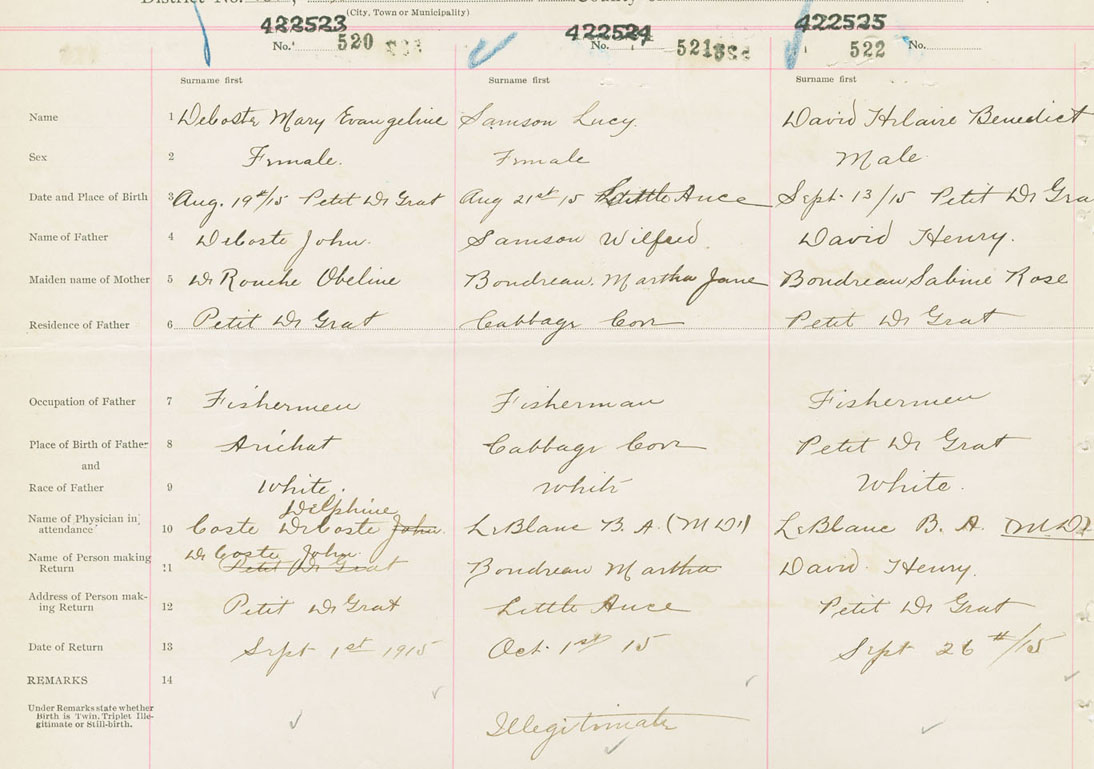 District No.
(City, Town or Municipality)
422523 422524 422525
No. 520 No. 521 522 No.
Surname first Surname first Surname first
Name 1 DeCoste Mary Evangeline Samson Lucy. David Hilaire Benedict
Sex 2 Female. Female Male
Date and Place of Birth 3 Aug. 19th/15 Petit De Grat Aug 21st 15 Little Ance Sept. 13/15 Petit De Gra
Name of Father 4 DeCoste John. Samson Wilfred. David Henry.
Maiden name of Mother 5 De Rouche Obeline Boudreau. Martha Jane Boudreau Sabine Rose
Residence of Father 6 Petit De Grat Cabbage Cove Petit De Grat
Occupation of Father 7 Fishermen Fisherman Fishermen
Place of Birth of Father 8 Arichat Cabbage Cove Petit De Grat
and
Race of Father 9 White. White White.
Delphine
Name of Physician in attendance 10 Coste DeCoste John. LeBlanc B. A. (M D.) LeBlanc B. A. (M.D)
De Coste John.
Name of Person making Return 11 Petit De Grat Boudreau Martha David Henry.
Address of Person mak-ing Return 12 Petit De Grat Little Ance Petit De Grat
Date of Return 13 Sept 1st 1915 Oct. 1st 15 Sept 26th/15
REMARKS 14
Under Remarks state whether
Birth is Twin, Triplet Ille-
gitimate or Still-birth.
Illegitimate